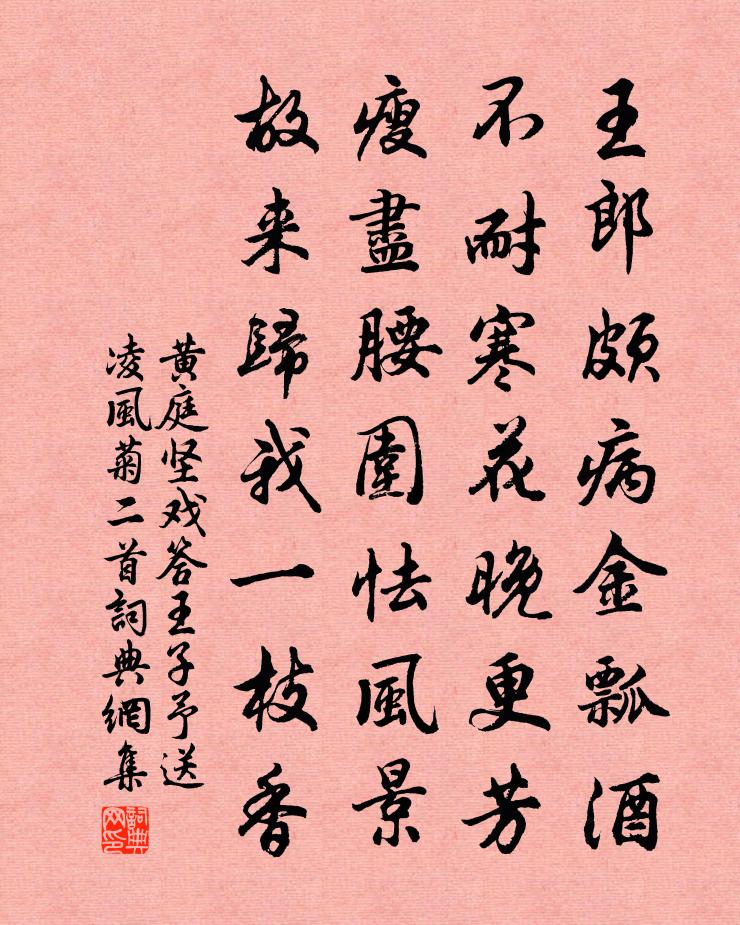 王郎頗病金瓢酒
不耐寒花晚更芳
瘦盡腰圍怯風景
故来歸我一枝香
黄庭坚戏答王子予送
凌風菊二首詞典網集
詞典网印